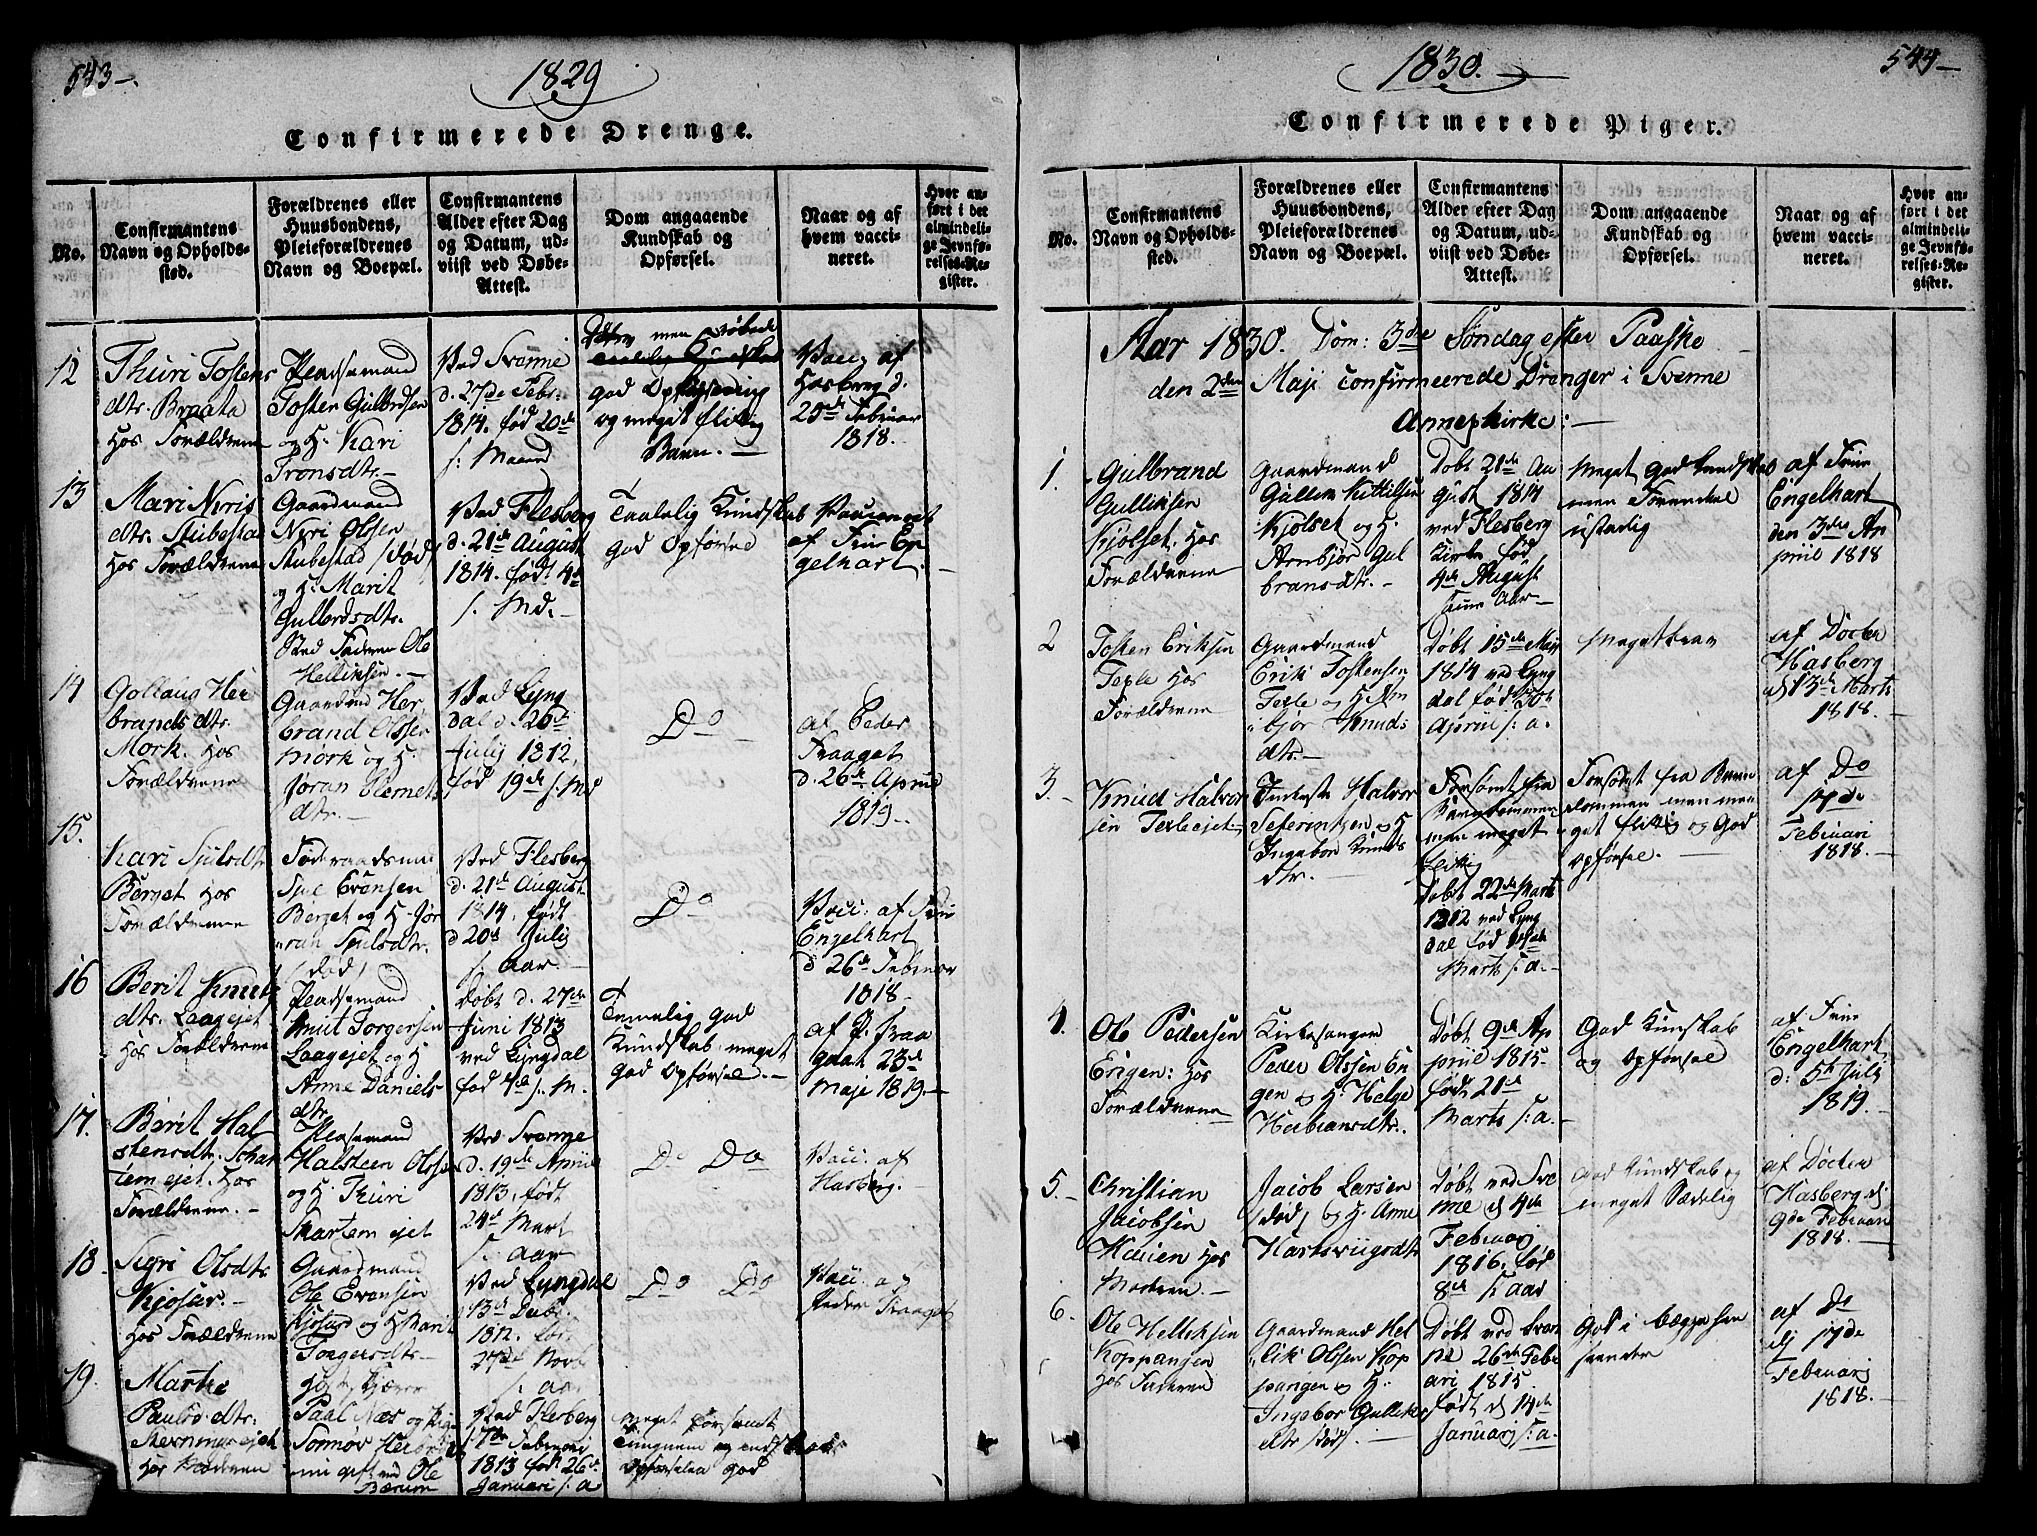 543
1829
Confirmerede Drenge.
No.
Confirmantens
Navn og Opholds-
sted.
Forældrenes eller
Huusbondens,
Pleieforældrenes
Navn og Boepæl.
Confirmantens
Alder efter Dag
og Datum, ud-
viist ved Døbe-
Attest.
Dom angaaende
Kundskab og
Opførsel.
Naar og af
hvem vacci-
neret.
Hvor an-
ført i det
almindeli-
ge Jevnfø-
relses-Re-
gister.
12
Thuri Tostens
dtr. Braata
hos Forældrene
Pladsemand
Tosten Gulbrdsen
og H. Kari
Tronsdtr.
Ved Svenne
d. 27de Febr.
1814. fød 20de
s. Maaned
god Opførsel
og meget flittig
Barn.
Vacc. af
Hasberg d.
25de Februar
1818.
13
Mari Niris
dtr. Stubestad
hos Forældrene
Gaardmand
Niri Olsen
Stubestad /død/
og H. Marit
Gulbrdsdtr.
Sted Faderen Ole
Helliksen.
Ved Flesberg
d. 21de August
1814. født 4de
s. Md.
Taalelig Kundskab
god Opførsel
Vaccineret
af Frue En
gelhart.
14
Gollaug Her
brands dtr.
Mørk. hos
Forældrene
Gaardmd Her
brand Olsen
Mørk og H.
Jøran Clemets
dtr.
Ved Lyng
dal d. 26de
July 1812,
fød 19de s. Md
Do
af Peder
Traaget
d. 26de April
1819.
15.
Kari Sjulsdtr
Berget hos
Forældrene
Føderaadsman
Sjul Evensen
Berget og H. Jør
an Sjulsdtr.
/død/
Ved Flesberg
d. 21de August
1814, født
d 20de July
s. Aar.
Do
Vacc: af Frue
Engelhart
d 26de Februar
1818
16
Berit Knuts
dtr. Laagejet
hos Forældrene
Pladsemand
Knut Torgersen
Laagejet og H
Anne Daniels
dtr.
Døbt d. 27de
Juni 1813
ved Lyngdal
fød 4de s. M.
Temelig god
Kundskab, meget
god Opførsel.
af P. Traa
gaat 23de
Maje 1819
17.
Berit Hal
stensdtr.
tem ejet, hos
Forældrene.
Pladsemand
Halsteen Olsen
og H. Thuri
Skartem ejet
Ved Svenne
d. 19de April
1813, født
24de Mart
s. aar
Do Do
Vacc: af
Hasberg.
18
Sigri Olsdtr
Kjøsur.
hos Forældrene
Gaardmand
Ole Evensen
Kjøsurd og H Marit
Torgersdtr
Ved Lyngdal
13de Decbr.
1812. født
27de Novb
s. aar
Do Do
Vacc: af
Peder Traaget
19.
Marthe
Pauls dtr.
hos Moderen
Paal Næs og
nu gift ved Ole
Bærum
Ved Flesberg
7de Februari
1813 født 26de
Januari s. a
meget forsømt
Opførselen god
544
1830.
Confirmerede Piger.
No.
Confirmantens
Navn og Opholds-
sted.
Forældrenes eller
Huusbondens,
Pleieforældrenes
Navn og Boepæl.
Confirmantens
Alder efter Dag
og Datum, ud-
viist ved Døbe-
Attest.
Dom angaaende
Kundskab og
Opførsel.
Naar og af
hvem vacci-
neret.
Hvor an-
ført i det
almindeli-
ge Jevnfø-
relses-Re-
gister.
Aar 1830. Dom: 3die Søndag efter Paaske
den 2den Maji confirmeerede Drenger i Svenne
Annexkirke:
1.
Gulbrand
Gulliksen
Kjølset, hos
Forældrene
Gaardmand
Gullik Kittilsen
Kjølset og H.
Arnbjør Gul
bransdtr.
Døbt 21de Au
gust 1814
ved Flesberg
Kirke fød
4de August
samme Aar
Meget god Kundskab
men
ustadig
af Frue
Engelhart
den 3die A
pril 1818
2
Tosten Eriksen
Texle hos
Forældrene
Gaardmand
Erik Tostensen
Texle og H.
bjør Knuds
dtr.
Døbt 15de Maji
1814 ved Lyng
dal fød 30te
April s: a.
Meget brav
af Docter
Hasberg
d 13de Marts
1818.
3.
Knud Halvor
sen Texleejet
Halvor
Seferentsen og H
Ingebor Knuds
dtr.
Forsømt fra
Barndommen
men meget
flittig
Døbt 22de Marts
1812 ved Lyng
dal fød
Marts s: a.
Forsømt fra Barn
dommen men me
get flittig og God
opførsel.
af Do
17de
Februari
1818.
4.
Ole Pedersen
Engen: hos
Forældrene
Kirkesanger
Peder Olssen En
gen og H: Helge
Herbransdtr.
Døbt 9de A
pril 1815
født 21de
Marts s: a.
God Kunskab
og opførsel
af Frue
Engelhart
d: 5te July
1819.
5.
Christian
Jacobsen
Hauen hos
Moderen.
Jacob Larsen
/død/ og H. Anne
Hartsviigsdtr
Døbt ved Sve
nne d 4de
Februarj
1816. fød
8de s: aar
God Kundskab og
meget Sædelig
af Docter
Hasberg d
9de Februari
1818.
6.
Ole Helliksen
Koppangen
hos Faderen
Gaardmand Hel
lik Olssen Kop
pangen og H:
Ingebor Gulliks
dtr /død/.
Døbt ved Sven
ne 26de Febr
ari 1815
født d 14de
Januarj s: a.
God i begge hen
seender
af Do
d 17de
Februarj
1818.